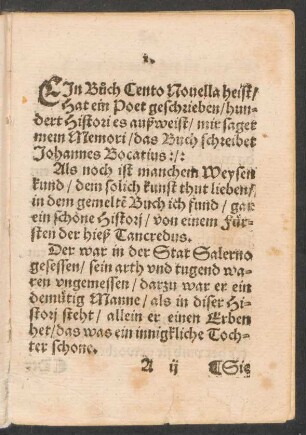 1.
EIn Bůch Cento Nouella heist/
Hat ein Poet geschrieben/hun-
dert Histori es außweist/ mir saget
mein Memori/das Buch schreibet
Johannes Bocatius:/:
Als noch ist manchem Weysen
kund/dem solich kunst thut lieben/
in dem gemeltẽ Buch ich fund/ gar
ein schöne Historj/von einem Für-
sten der hieß Tancredus.
Der war in der Stat Salerno
gesessen/sein arth vnd tugend wa-
ren vngemessen/darzu war er ein
demütig Manne/als in diser Hi-
storj steht/ allein er einen Erben
het/das was ein innigkliche Toch-
ter schone.
A ij ¶ Sie